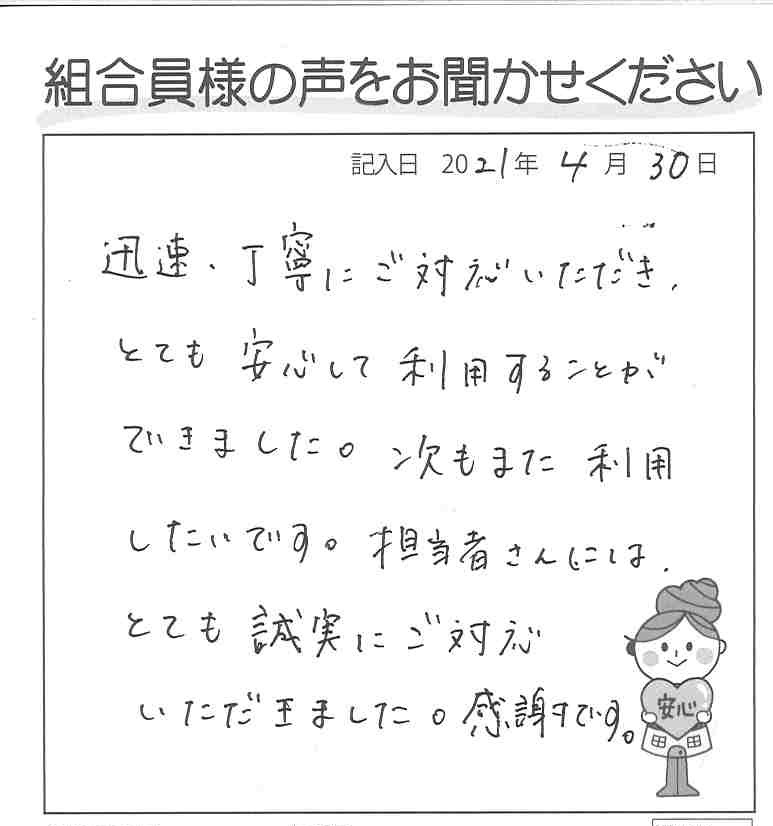 組合員様の声をお聞かせください
記入日 2021年 4月 30日
迅速、丁寧にご対応いただき、
とても 安心して 利用することが
できました。次もまた 利用
したいです。担当者さんには、
とても 誠実にご対応
いただきました。感謝です。
安心